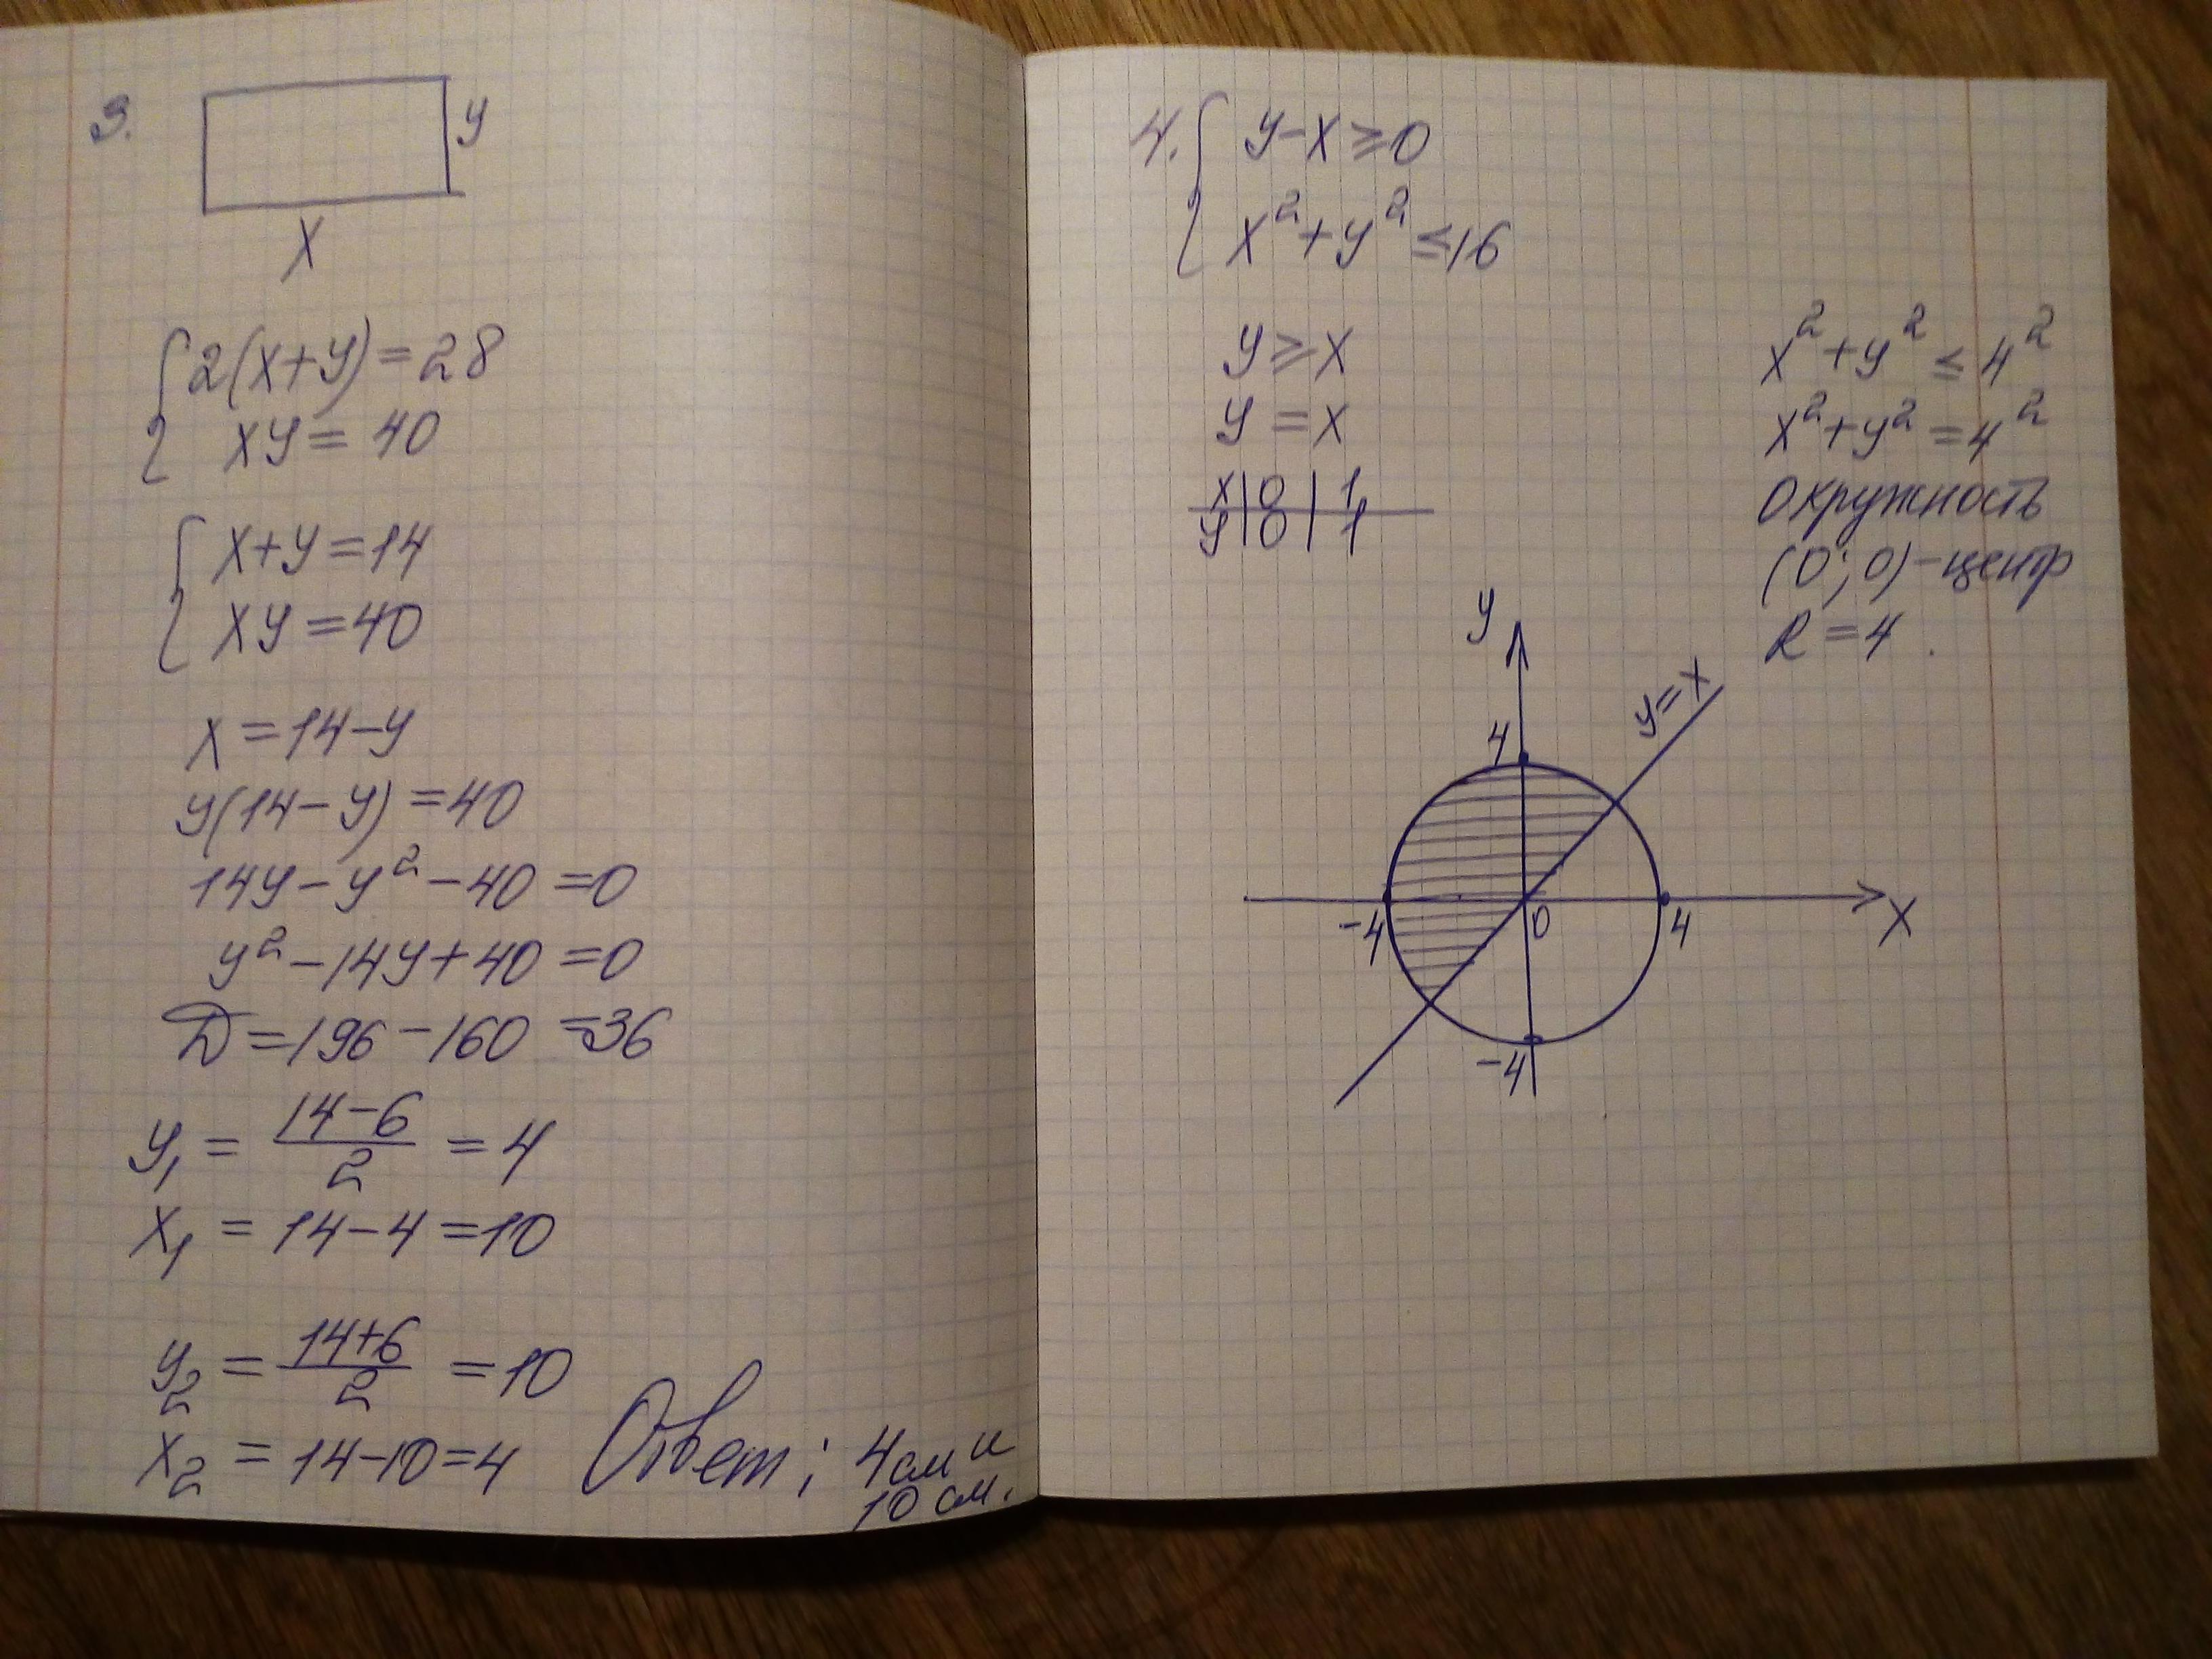 3.
y
x
2(x+y)=28
xy=40
x+y=14
xy=40
x=14-y
y(14-y)=40
14y-y²-40=0
y²-14y+40=0
D=196-160=36
y₁ = (14-6)/2 = 4
x₁ = 14-4=10
y₂ = (14+6)/2 = 10
x₂ = 14-10=4
Ответ: 4см и
10 см.
4. y-x≥0
x²+y²≤16
y≥x
y=x
x|0|1
y|0|1
x²+y²≤4²
x²+y²=4²
окружность
(0;0)-центр
R=4.
y
y=x
4
-4
0
4
x
-4